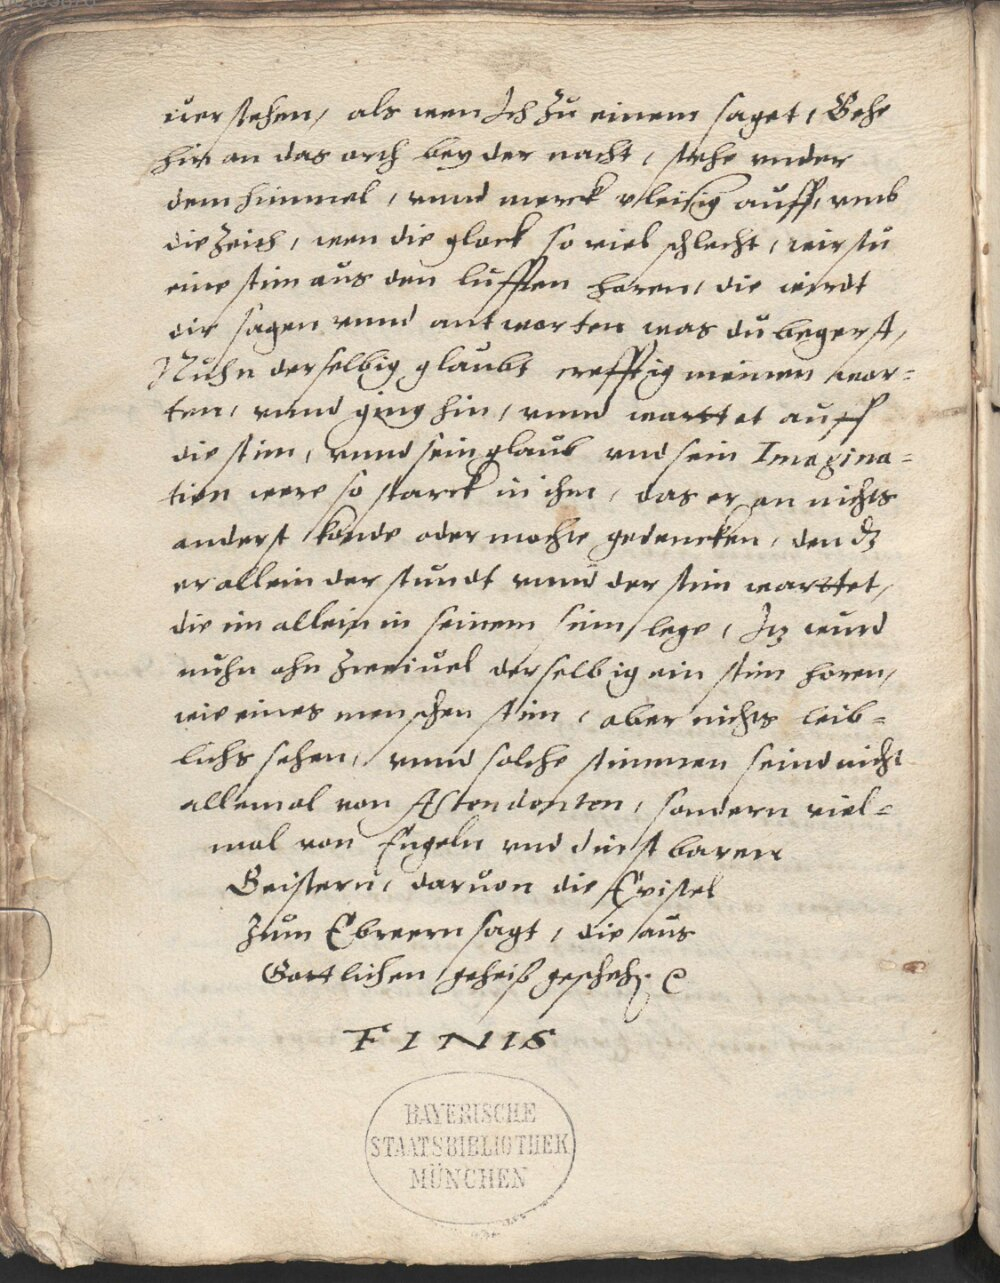 uerstehen, als wen Ich zu einem saget, Gehe
hin an das orth bey der nacht, stehe vnder
dem himmel, vnnd merck vleisig auff, vmb
die Zeith, wen die glock so viel schlecht, wirstu
eine stim aus den lufften horen, die wirdt
dir sagen vnnd antworten was du begerst,
Nuhn derselbig glaubt crefftig meinen wor=
ten, vnnd ging hin, vnnd warttet auff
die stim, vnnd sein glaub vnd sein Imagina=
tion were so starck in ihm, das er an nichts
anderst konde oder mochte gedencken, den dz
er allein der stundt vnnd der stim warttet,
die im allein in seinem sinn lege, Itz wurd
nuhn ohn Zweiuel derselbig ein stim horen,
wie eines menschen stim, aber nichts leib=
lichs sehen, vnnd solche stimmen seind nicht
allemal von Astendenten, sondern viel=
mal von Engeln vnd dinstbaren
Geistern, daruon die Epistel
Zum Ebreern sagt, die aus
Gottlichen geheiß gescheh
FINIS
BAYERISCHE
STAATSBIBLIOTHEK
MÜNCHEN